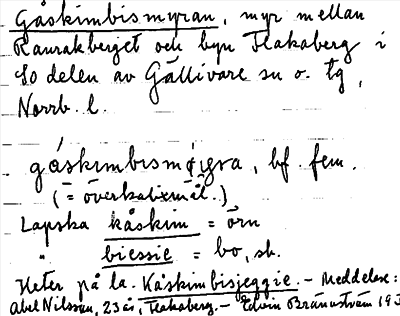 Gåskimbismyran, myr mellan
Ranrakberget och byn Flakaberg i
SO delen av Gällivare sn o. tg,
Norrb. l.
gåskimbismøigra, bf. fem.
(= överkalixmål.)
Lapska kåskim = örn
" biessie = bo, sb.
Heter på la. Kåskimbisjeggie. – Meddelare:
Abel Nilsson, 23 år, Flakaberg. – Edvin Brännström 193